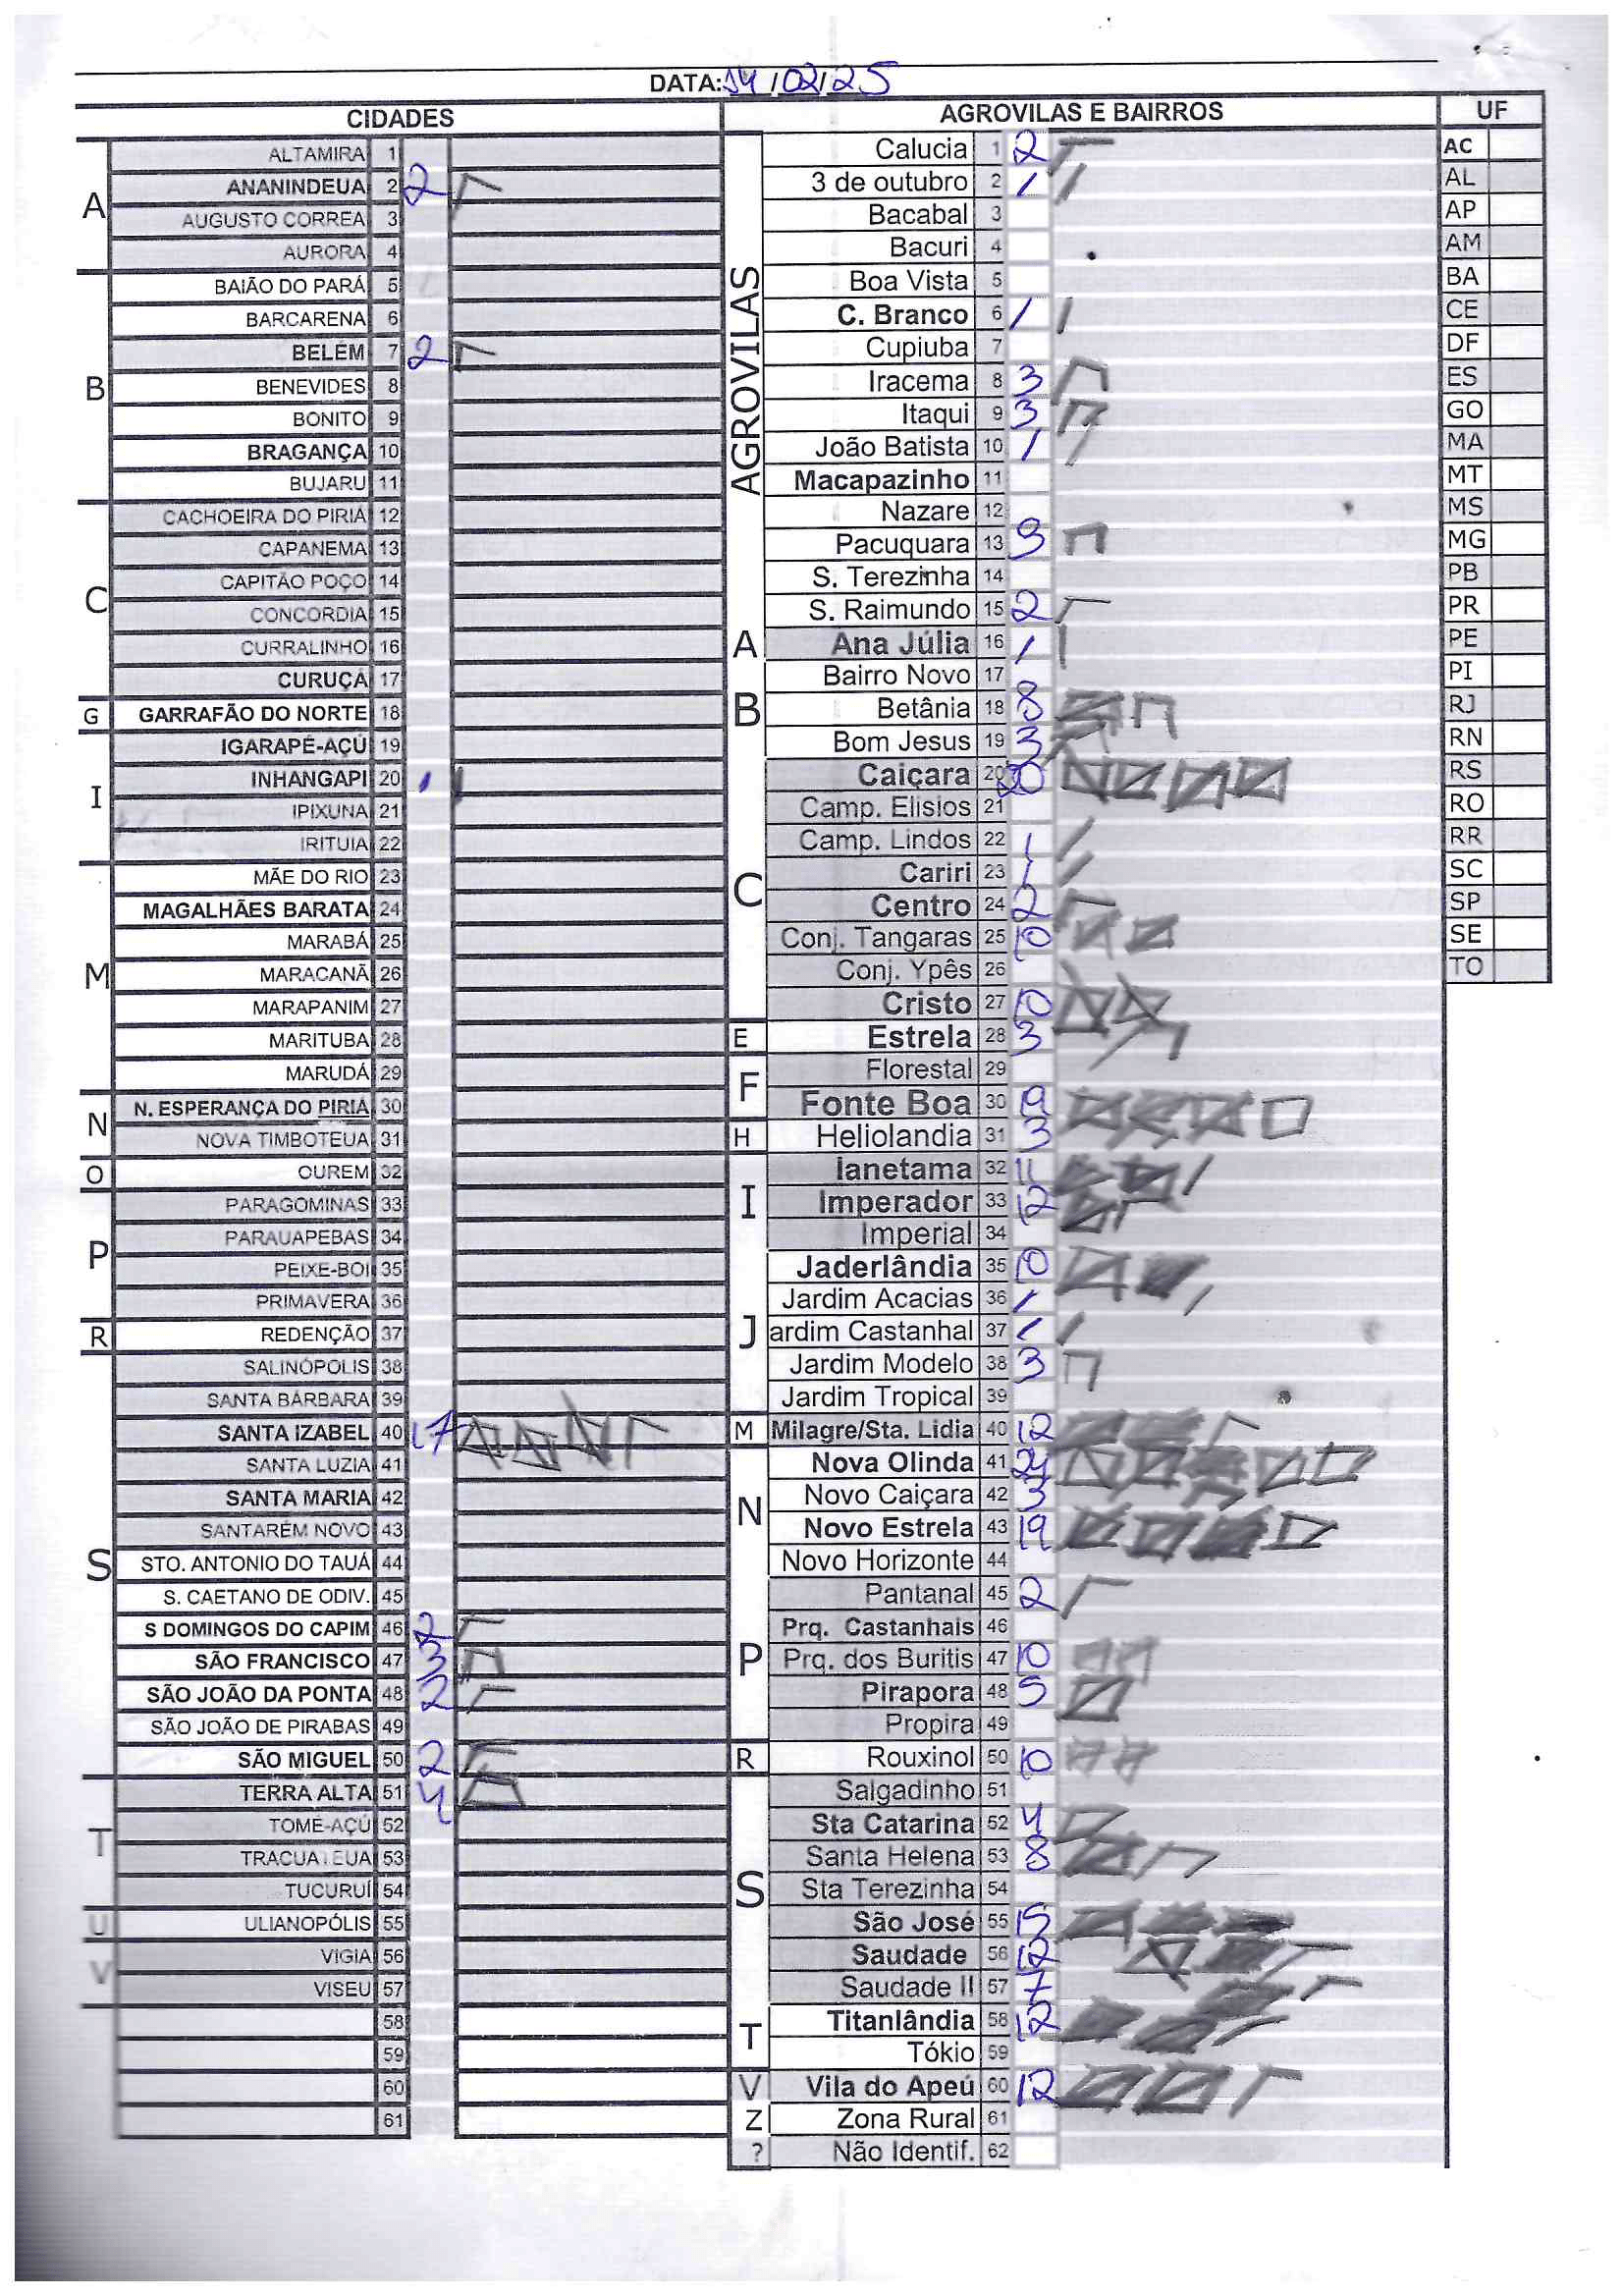 DATA: 14/02/25
CIDADES
A
ALTAMIRA 1
ANANINDEUA 2 2
AUGUSTO CORREA 3
AURORA 4
B
BAIÃO DO PARÁ 5
BARCARENA 6
BELÉM 7 2
BENEVIDES 8
BONITO 9
BRAGANÇA 10
BUJARU 11
C
CACHOEIRA DO PIRIÁ 12
CAPANEMA 13
CAPITÃO POÇO 14
CONCORDIA 15
CURRALINHO 16
CURUÇÁ 17
G
GARRAFÃO DO NORTE 18
I
IGARAPÉ-AÇÚ 19
INHANGAPI 20 1
IPIXUNA 21
IRITUIA 22
M
MÃE DO RIO 23
MAGALHÃES BARATA 24
MARABÁ 25
MARACANÃ 26
MARAPANIM 27
MARITUBA 28
MARUDÁ 29
N
N. ESPERANÇA DO PIRIÁ 30
NOVA TIMBOTEUA 31
O
OUREM 32
P
PARAGOMINAS 33
PARAUAPEBAS 34
PEIXE-BOI 35
PRIMAVERA 36
R
REDENÇÃO 37
S
SALINÓPOLIS 38
SANTA BÁRBARA 39
SANTA IZABEL 40 17
SANTA LUZIA 41
SANTA MARIA 42
SANTARÉM NOVO 43
STO. ANTONIO DO TAUÁ 44
S. CAETANO DE ODIV. 45
S DOMINGOS DO CAPIM 46 2
SÃO FRANCISCO 47 3
SÃO JOÃO DA PONTA 48 2
SÃO JOÃO DE PIRABAS 49
SÃO MIGUEL 50 2
T
TERRA ALTA 51 4
TOMÉ-AÇÚ 52
TRACUATEUA 53
TUCURUÍ 54
U
ULIANOPÓLIS 55
V
VIGIA 56
VISEU 57
58
59
60
61
AGROVILAS E BAIRROS
AGROVILAS
Calucia 1 2
3 de outubro 2 1
Bacabal 3
Bacuri 4
Boa Vista 5
C. Branco 6 1
Cupiuba 7
Iracema 8 3
Itaqui 9 3
João Batista 10 1
Macapazinho 11
Nazare 12
Pacuquara 13 3
S. Terezinha 14
S. Raimundo 15 2
A
Ana Júlia 16 1
B
Bairro Novo 17
Betânia 18 8
Bom Jesus 19 3
C
Caiçara 20 20
Camp. Elisios 21
Camp. Lindos 22 1
Cariri 23 1
Centro 24 2
Conj. Tangaras 25 10
Conj. Ypês 26
Cristo 27 10
E
Estrela 28 3
F
Florestal 29
Fonte Boa 30 19
H
Heliolandia 31 3
I
Ianetama 32 11
Imperador 33 12
Imperial 34
J
Jaderlândia 35 10
Jardim Acacias 36 1
ardim Castanhal 37 1
Jardim Modelo 38 3
Jardim Tropical 39
M
Milagre/Sta. Lidia 40 12
N
Nova Olinda 41 24
Novo Caiçara 42 3
Novo Estrela 43 19
Novo Horizonte 44
P
Pantanal 45 2
Prq. Castanhais 46
Prq. dos Buritis 47 10
Pirapora 48 5
Propira 49
R
Rouxinol 50 10
S
Salgadinho 51
Sta Catarina 52 4
Santa Helena 53 8
Sta Terezinha 54
São José 55 15
Saudade 56 12
Saudade II 57 7
T
Titanlândia 58 12
Tókio 59
V
Vila do Apeú 60 12
Z
Zona Rural 61
?
Não Identif. 62
UF
AC
AL
AP
AM
BA
CE
DF
ES
GO
MA
MT
MS
MG
PB
PR
PE
PI
RJ
RN
RS
RO
RR
SC
SP
SE
TO